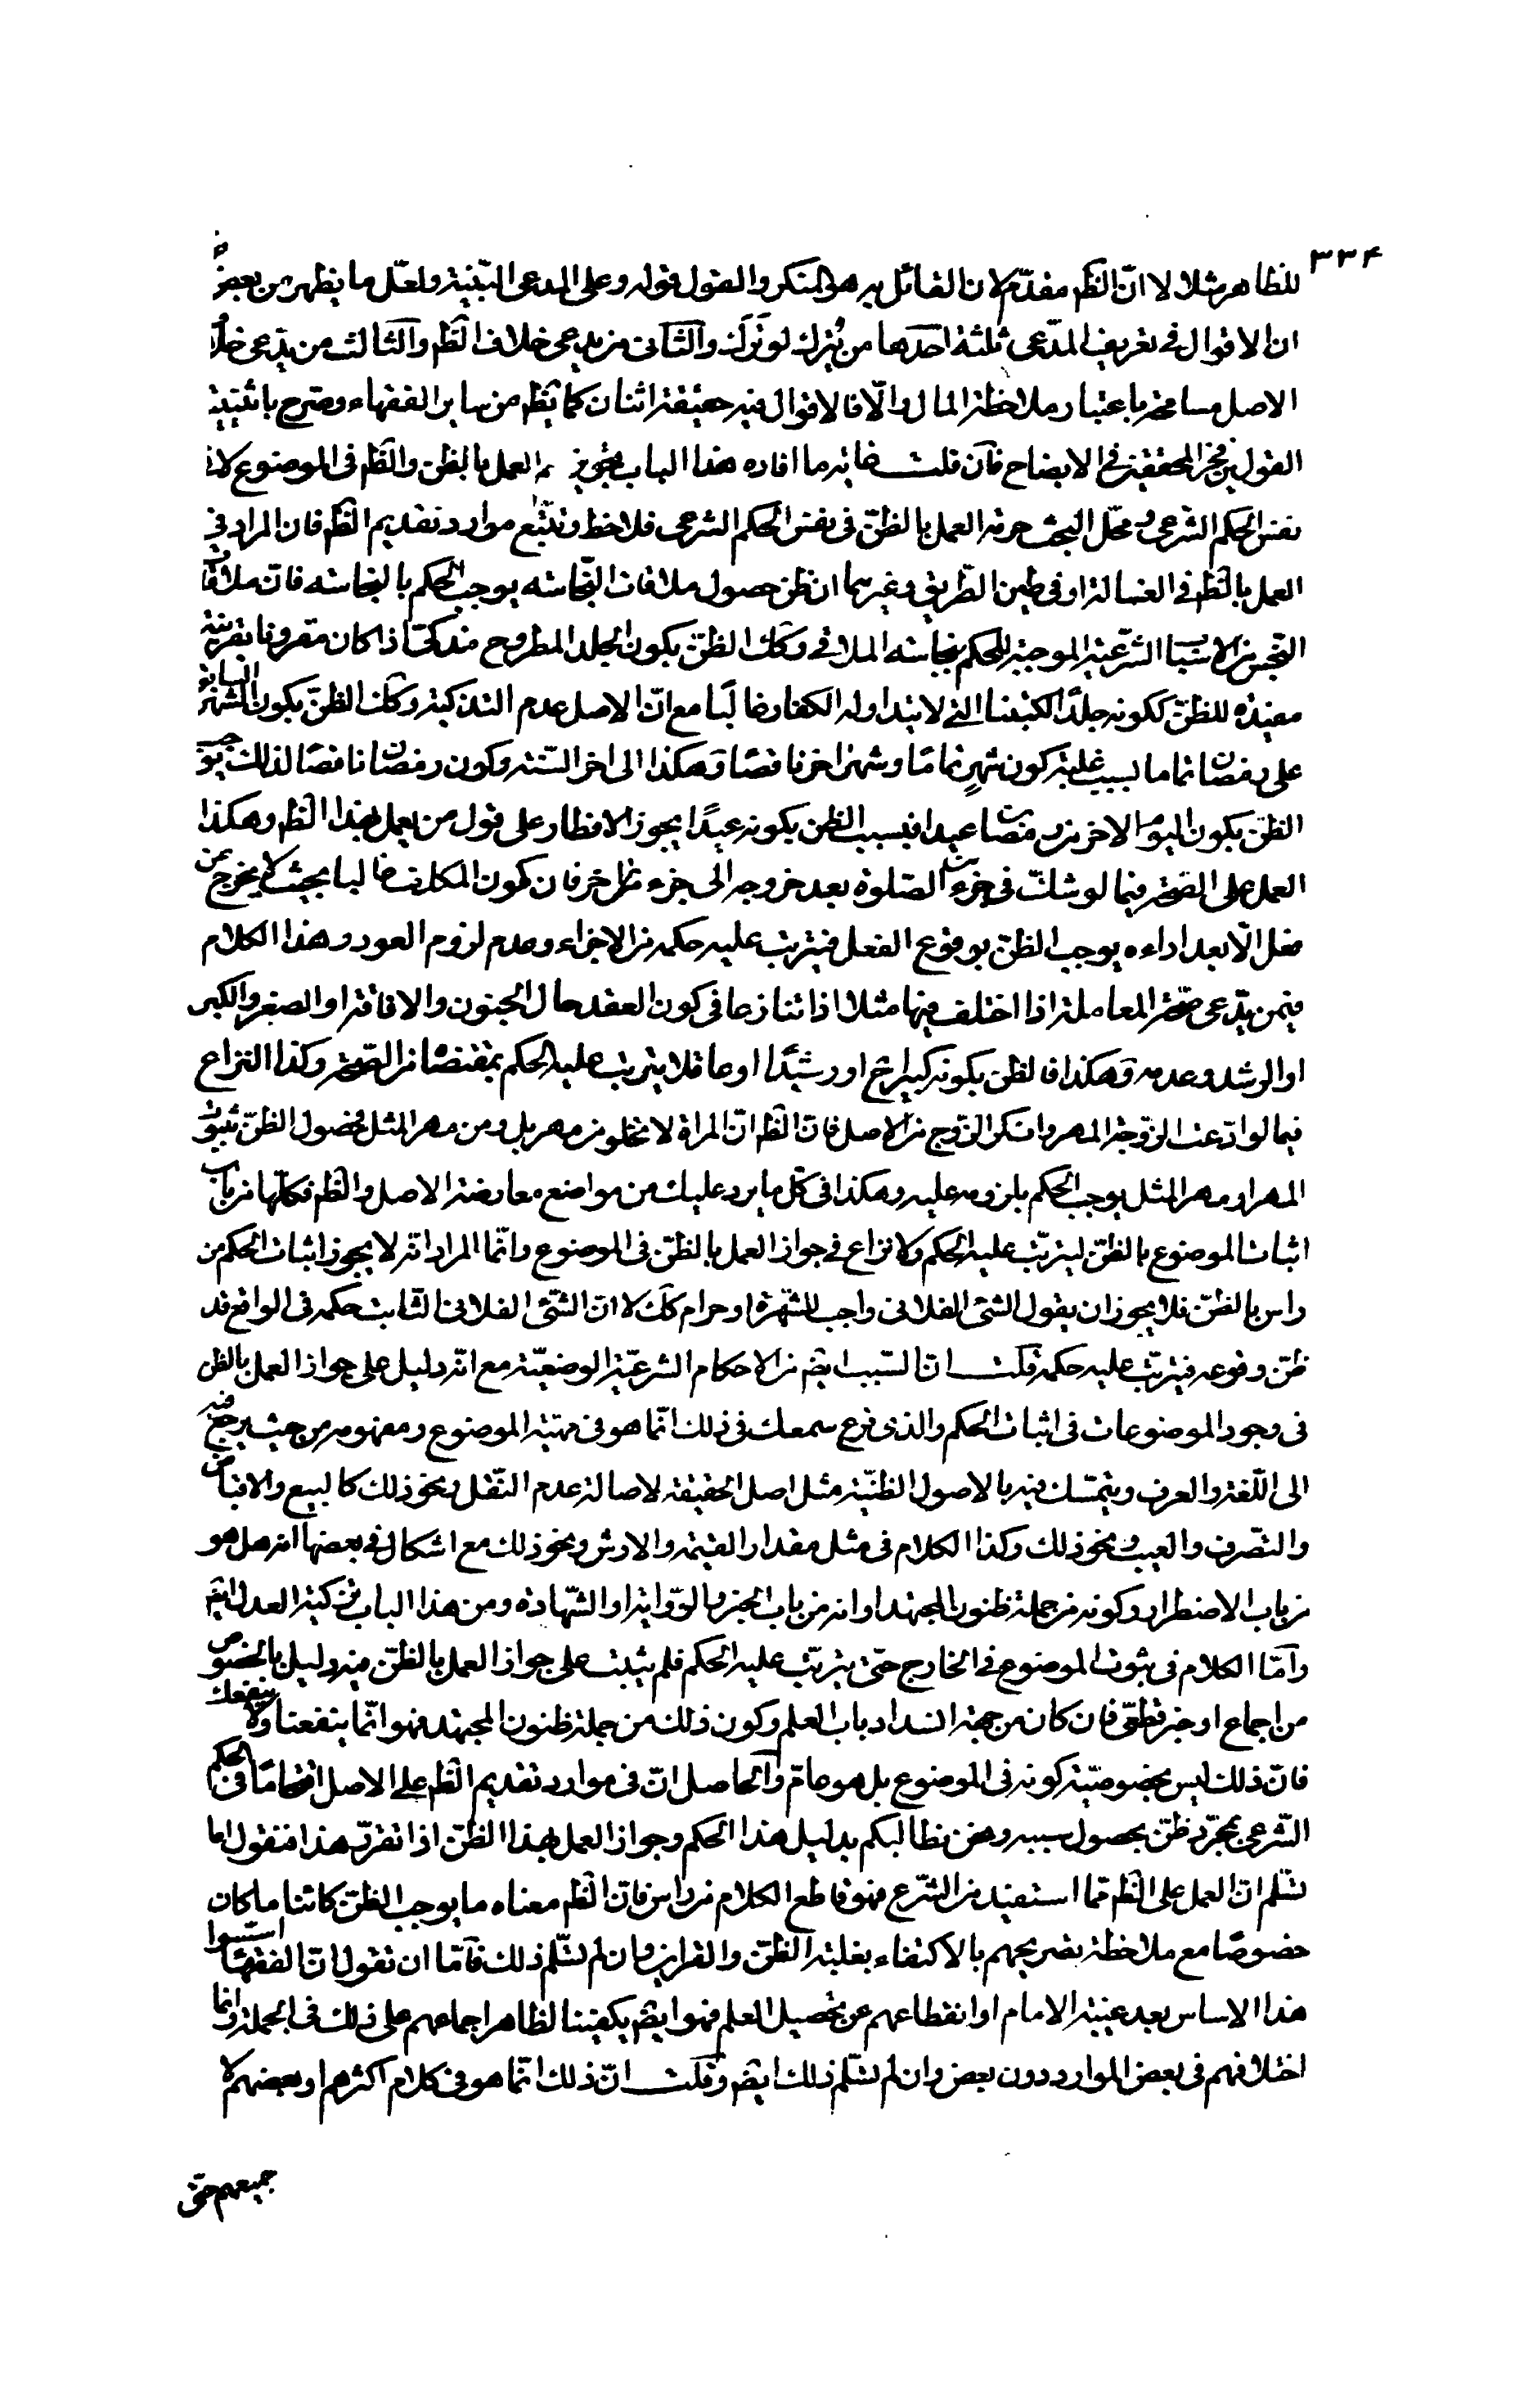 ٣٣۴
للظاهر مثلا لا انّ الظم مقدّم لان القائل به هو المنكر والقول قوله وعلى المدعى البيّنة ولعلّ ما يظهر من بعضهم
ان الاقوال في تعريف المدّعى ثلثة احدها من يُترك لو تَرَك والثانى من يدعى خلاف الظم والثالث من يدّعى خلاف
الاصل مسامحة باعتبار ملاحظة المال والّا فالاقوال فيه حقيقة اثنان كما يظم من ساير الفقهاء وصرح باثنينية
القول فيه فخر المحققين في الايضاح فآن قلت غاية ما افاده هذا الباب تجويز العمل بالظن والظم فى الموضوع لا فى
نفس الحكم الشرعى ومحّل البحث حرمة العمل بالظنّ فى نفس الحكم الشرعى فلاحظ وتتبّع موارد تقديم الظم فان المراد فى
العمل بالظم فى الغسالة او فى طين الطّريق وغيرهما ان ظن حصول ملاقات النّجاسه يوجب الحكم بالنجاسه فانّ ملاقات
النّجس من الاسباب الشرعّية الموجبة للحكم بنجاسة الملاقى وكك الظنّ بكون الجلد المطروح مذكّى اذا كان مقرونا بقرينة
مفيدة للظنّ ككونه جلدًا لكتبنا التى لا يتداوله الكفار غالبًا مع انّ الاصل عدم التذكية وكك الظنّ بكون الشهر السابق
على رمضان تاما بسبب غلبة كون شهرٍ تامّا وشهرًا خر ناقصًا وهكذا الى اخر السّنة وكون رمضان ناقصًا لذلك يوجب
الظنّ بكون اليوم الاخر من رمضان عيدا فبسبب الظن بكونه عيدًا يجوز الافطار على قول من يعمل بهذا الظم وهكذا
العمل على الصّحة فيما لو شكّ فى جزء من الصّلوة بعد خروجه الى جزء اخر فان كون المكلف غالبا بحيث لا يخرج عن
فعل الّا بعد اداءه يوجب الظنّ بوقوع الفعل فيترتب عليه حكمه من الاجزاء وعدم لزوم العود وهذا الكلام
فيمن يدّعى صحّة المعاملة اذا اختلف فيها مثلا اذا تنازعا فى كون العقد حال الجنون والافاقة او الصغر والكبر
او الرشد وعدمه وهكذا فالظن بكونه كبيرا او رشيدًا او عاقلا يترتب عليه الحكم بمقتضاه من الصّحة وكذا النزاع
فيما لو ادّعت الزّوجة المهر وانكر الزّوج من الاصل فانّ الظم انّ المراة لا تخلو من مهر بل ومن مهر المثل فحصول الظنّ بثبوت
المهر او مهر المثل يوجب الحكم بلزومه عليه وهكذا فى كلّ ما يرد عليك من مواضع معارضة الاصل والظم فكلّها من باب
اثبات الموضوع بالظنّ ليترتّب عليه الحكم ولا نزاع فى جواز العمل بالظنّ فى الموضوع وانّما المراد انّه لا يجوز اثبات الحكم من
راس بالظنّ فلا يجوز ان يقول الشئ الفلانى واجب للشّهرة او حرام كك لا انّ الشّئ الفلانى الثّابت حكمه فى الواقع قد
ظنّ وقوعه فيترتّب عليه حكمه قلت انّ السّبب ايضم من الاحكام الشرعيّة الوضعيّة مع انّه دليل على جواز العمل بالظن
فى وجود الموضوعات فى اثبات الحكم والذى قرع سمعك فى ذلك انّما هو فى مهيّة الموضوع ومفهومه من حيث يرجع فيه
الى اللّغة والعرف ويتمسّك فيه بالاصول الظنّية مثل اصل الحقيقة لاصالة عدم النّقل ونحو ذلك كالبيع والاقباض
والتصّرف والعيب ونحو ذلك وكذا الكلام فى مثل مقدار القيمة والارش ونحو ذلك مع اشكال فى بعضها انه هل هو
من باب الاضطرار وكونه من جملة ظنون المجتهد او انه من باب الخبر والرّواية او الشّهادة ومن هذا الباب تزكية العدل ايضم
وآمّا الكلام فى ثبوت الموضوع فى الخارج حتّى يترتّب عليه الحكم فلم يثبت على جواز العمل بالظنّ فيه دليل بالخصوص
من اجماع او خبر قطعىّ فان كان من جهة انسداد باب العلم وكون ذلك من جملة ظنون المجتهد فهو انّما ينفعنا ولا ينفعك
فانّ ذلك ليس بخصوصيّة كونه فى الموضوع بل هو عامّ وآلحاصل انّ فى موارد تقديم الظم على الاصل اقحامًا فى الحكم
الشّرعى بمجرّد ظنّ بحصول سببه ونحن نطالبكم بدليل هذا الحكم وجواز العمل بهذا الظنّ اذا تقرّر هذا فنقول اما
نسّلم انّ العمل على الظم ممّا استفيد من الشّرع فهو قاطع الكلام من راس فانّ الظم معناه ما يوجب الظنّ كائنا ما كان
خصوصًا مع ملاحظة تصريحهم بالاكتفاء بغلبة الظنّ والقراين وان لم نسّلم ذلك فآمّا ان نقول انّ الفقهاء اسّسوا
هذا الاساس بعد غيبة الامام او انقطاعهم عن تحصيل العلم فهو ايضم يكفيننا لظاهر اجماعهم على ذلك فى الجملة وانما
اختلافهم فى بعض الموارد دون بعض وان لم نسّلم ذلك ايضم وقلت انّ ذلك انّما هو فى كلام اكثرهم او بعضهم لا
جميعهم حتى